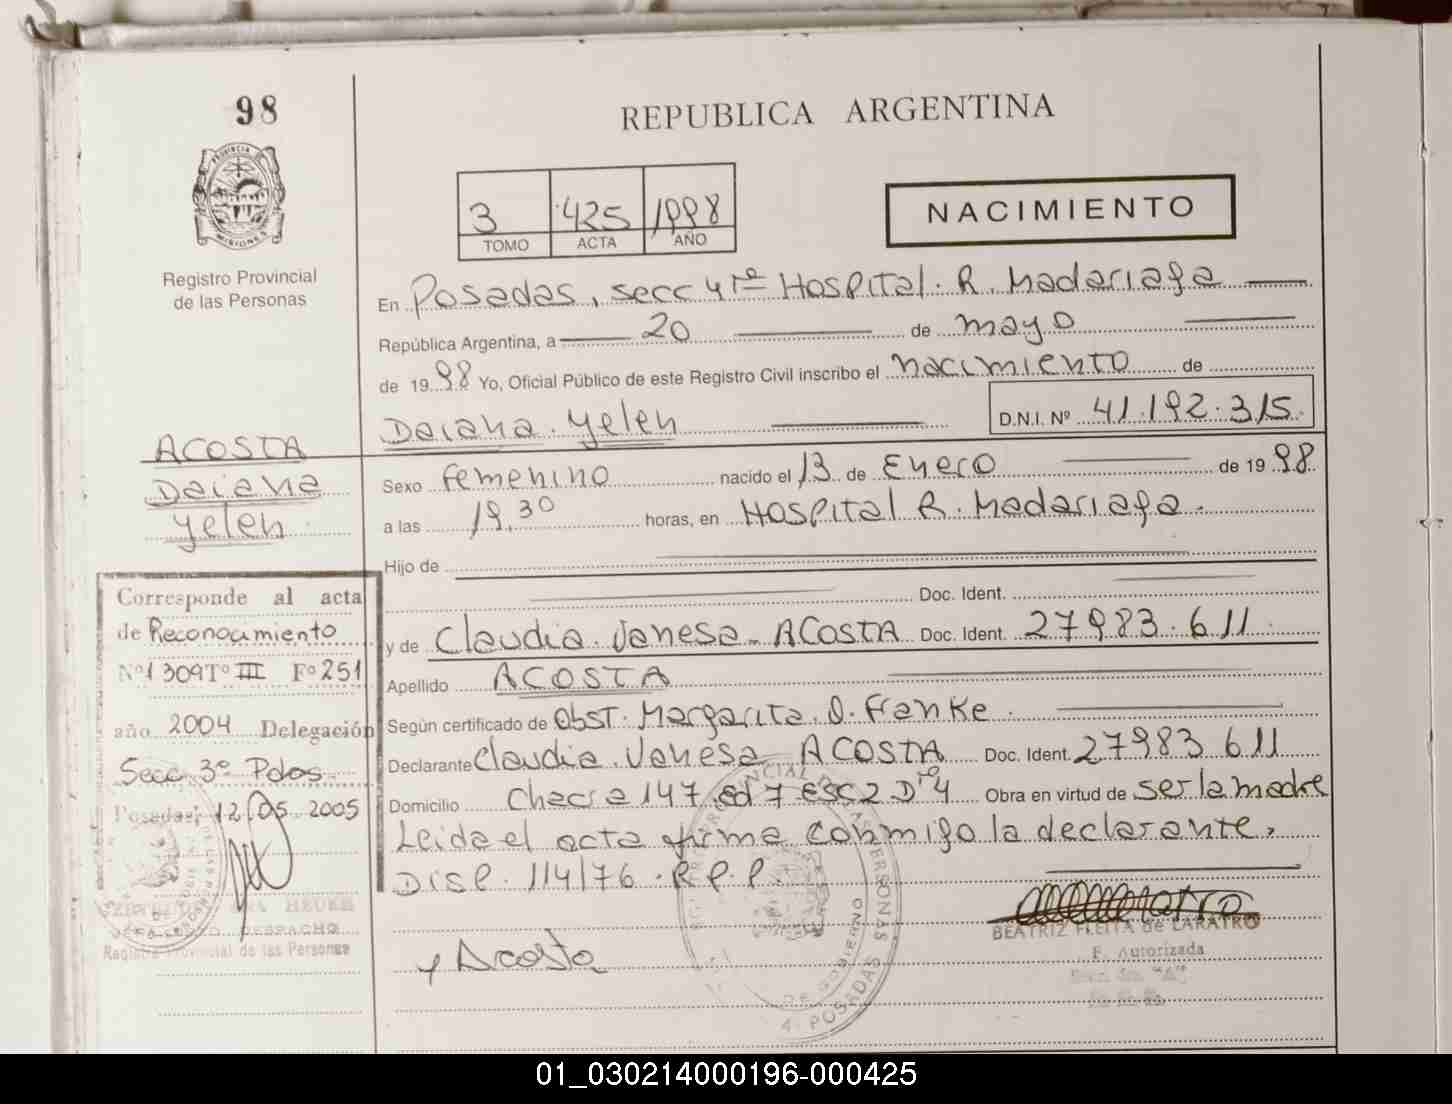 98
REPUBLICA ARGENTINA
PROVINCIA
MISIONES
Registro Provincial
de las Personas
3 425 1998
TOMO ACTA AÑO
NACIMIENTO
En Posadas, secc 4ta Hospital. R. Madariaga
República Argentina, a 20 de mayo
de 1998 Yo, Oficial Público de este Registro Civil inscribo el nacimiento de
Daiana Yelen D.N.I. Nº 41.192.315
ACOSTA
Daiana
Yelen
Sexo femenino nacido el 13 de Enero de 1998
a las 19,30 horas, en Hospital R. Madariaga.
Hijo de
Doc. Ident.
y de Claudia Vanesa ACOSTA Doc. Ident. 27983.611
Apellido ACOSTA
Según certificado de Obst. Margarita O. Franke
Declarante Claudia Vanesa ACOSTA Doc. Ident. 27983611
Domicilio Chacra 147 Ed 7 Esc 2 Dto 4 Obra en virtud de ser la madre
Leida el acta firma conmigo la declarante,
Disp. 114/76. R.P.P.
Corresponde al acta
de Reconocimiento
Nº1309 Tº III Fº 251
año 2004 Delegación
Secc. 3º Pdas
Posadas, 12/05 2005
DESPACHO
Registro Provincial de las Personas
y Acosta
BEATRIZ FLEITA de LARATRO
F. Autorizada
POSADAS
DE GOBIERNO
01_030214000196-000425